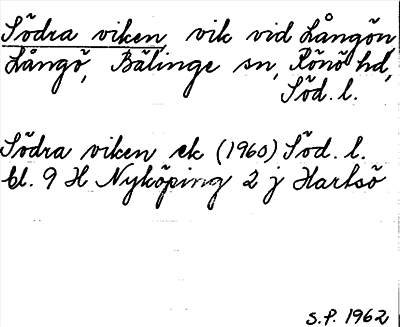 Södra viken vik vid Långön,
Långö, Bälinge sn, Rönö hd,
Söd. l.
Södra viken ek (1960) Söd. l.
bl. 9 H Nyköping 2 j Hartsö
S.P. 1962